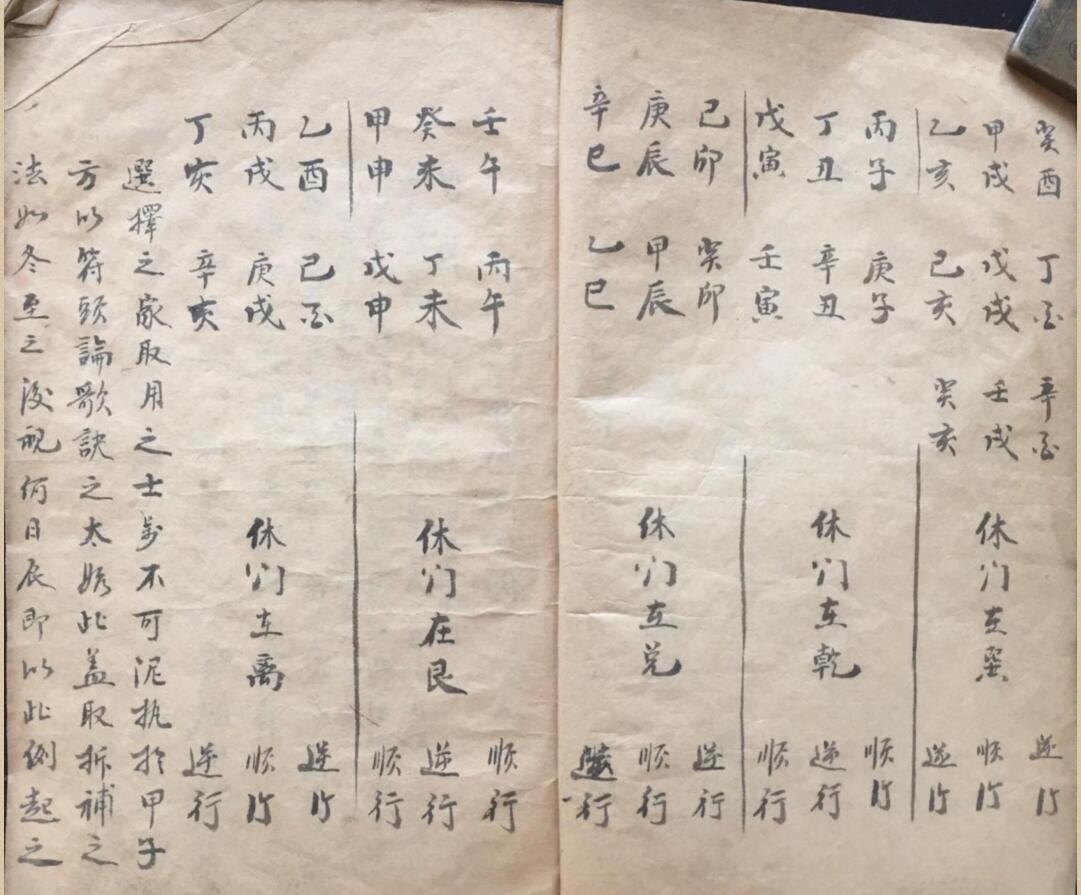 癸酉 丁酉 辛酉 逆行
甲戌 戊戌 壬戌 休门在巽 顺行
乙亥 己亥 癸亥 逆行
丙子 庚子 顺行
丁丑 辛丑 休门在乾 逆行
戊寅 壬寅 顺行
己卯 癸卯 逆行
庚辰 甲辰 休门在兑 顺行
辛巳 乙巳 逆行
壬午 丙午 顺行
癸未 丁未 休门在艮 逆行
甲申 戊申 顺行
乙酉 己酉 逆行
丙戌 庚戌 休门在离 顺行
丁亥 辛亥 逆行
選擇之家取用之士萬不可泥执於甲子
方以符頭論歌訣之太此盖取拆補之
法如冬至之後视何日辰即以此例起之